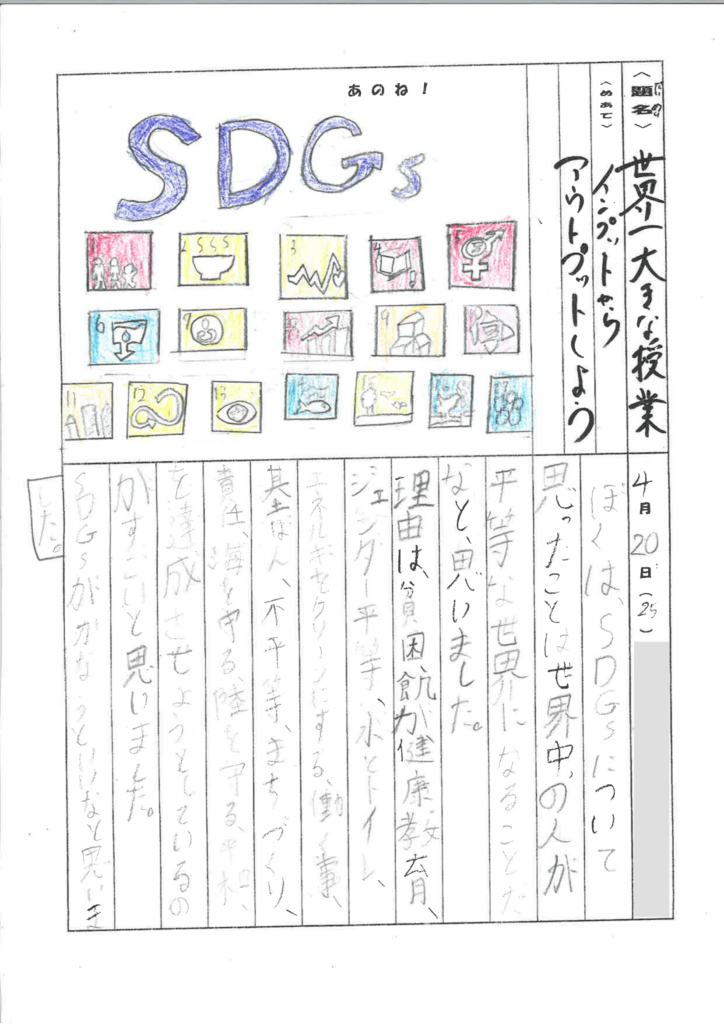 〈題名〉世界一大きな授業
〈めあて〉インプットから
アウトプットしよう
あのね！
SDGs
1
2
3
4
5
6
7
8
9
10
11
12
13
4月20日(25)
ぼくは、SDGsについて
思ったことは世界中の人が
平等な世界になることだ
なと、思いました。
理由は、貧困、飢が健康教育、
ジェンダー平等、水とトイレ、
エネルギをクリーンにする、働く事、
基ばん、不平等、まちづくり、
責任、海を守る、陸を守る、平和、
を達成させようとしているの
がすごいと思いました。
SDGsがかなうといいなと思いま
した。